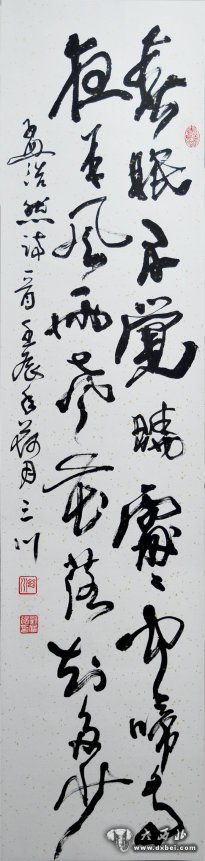 春眠不覺曉處々聞啼鳥
夜来風雨聲花落知多少
孟浩然诗一首壬辰年荷月三川
大西北
www.dxbei.com